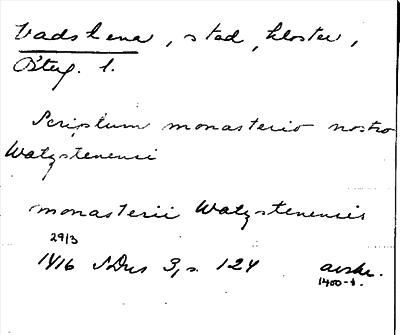 Vadstena, stad, kloster,
Östg. l.
Scriptum monasterio nostro
Watzstenensi
monasterii Watzstenensis
29/3
1416 SDns 3, s. 124 avskr.
1400-t.